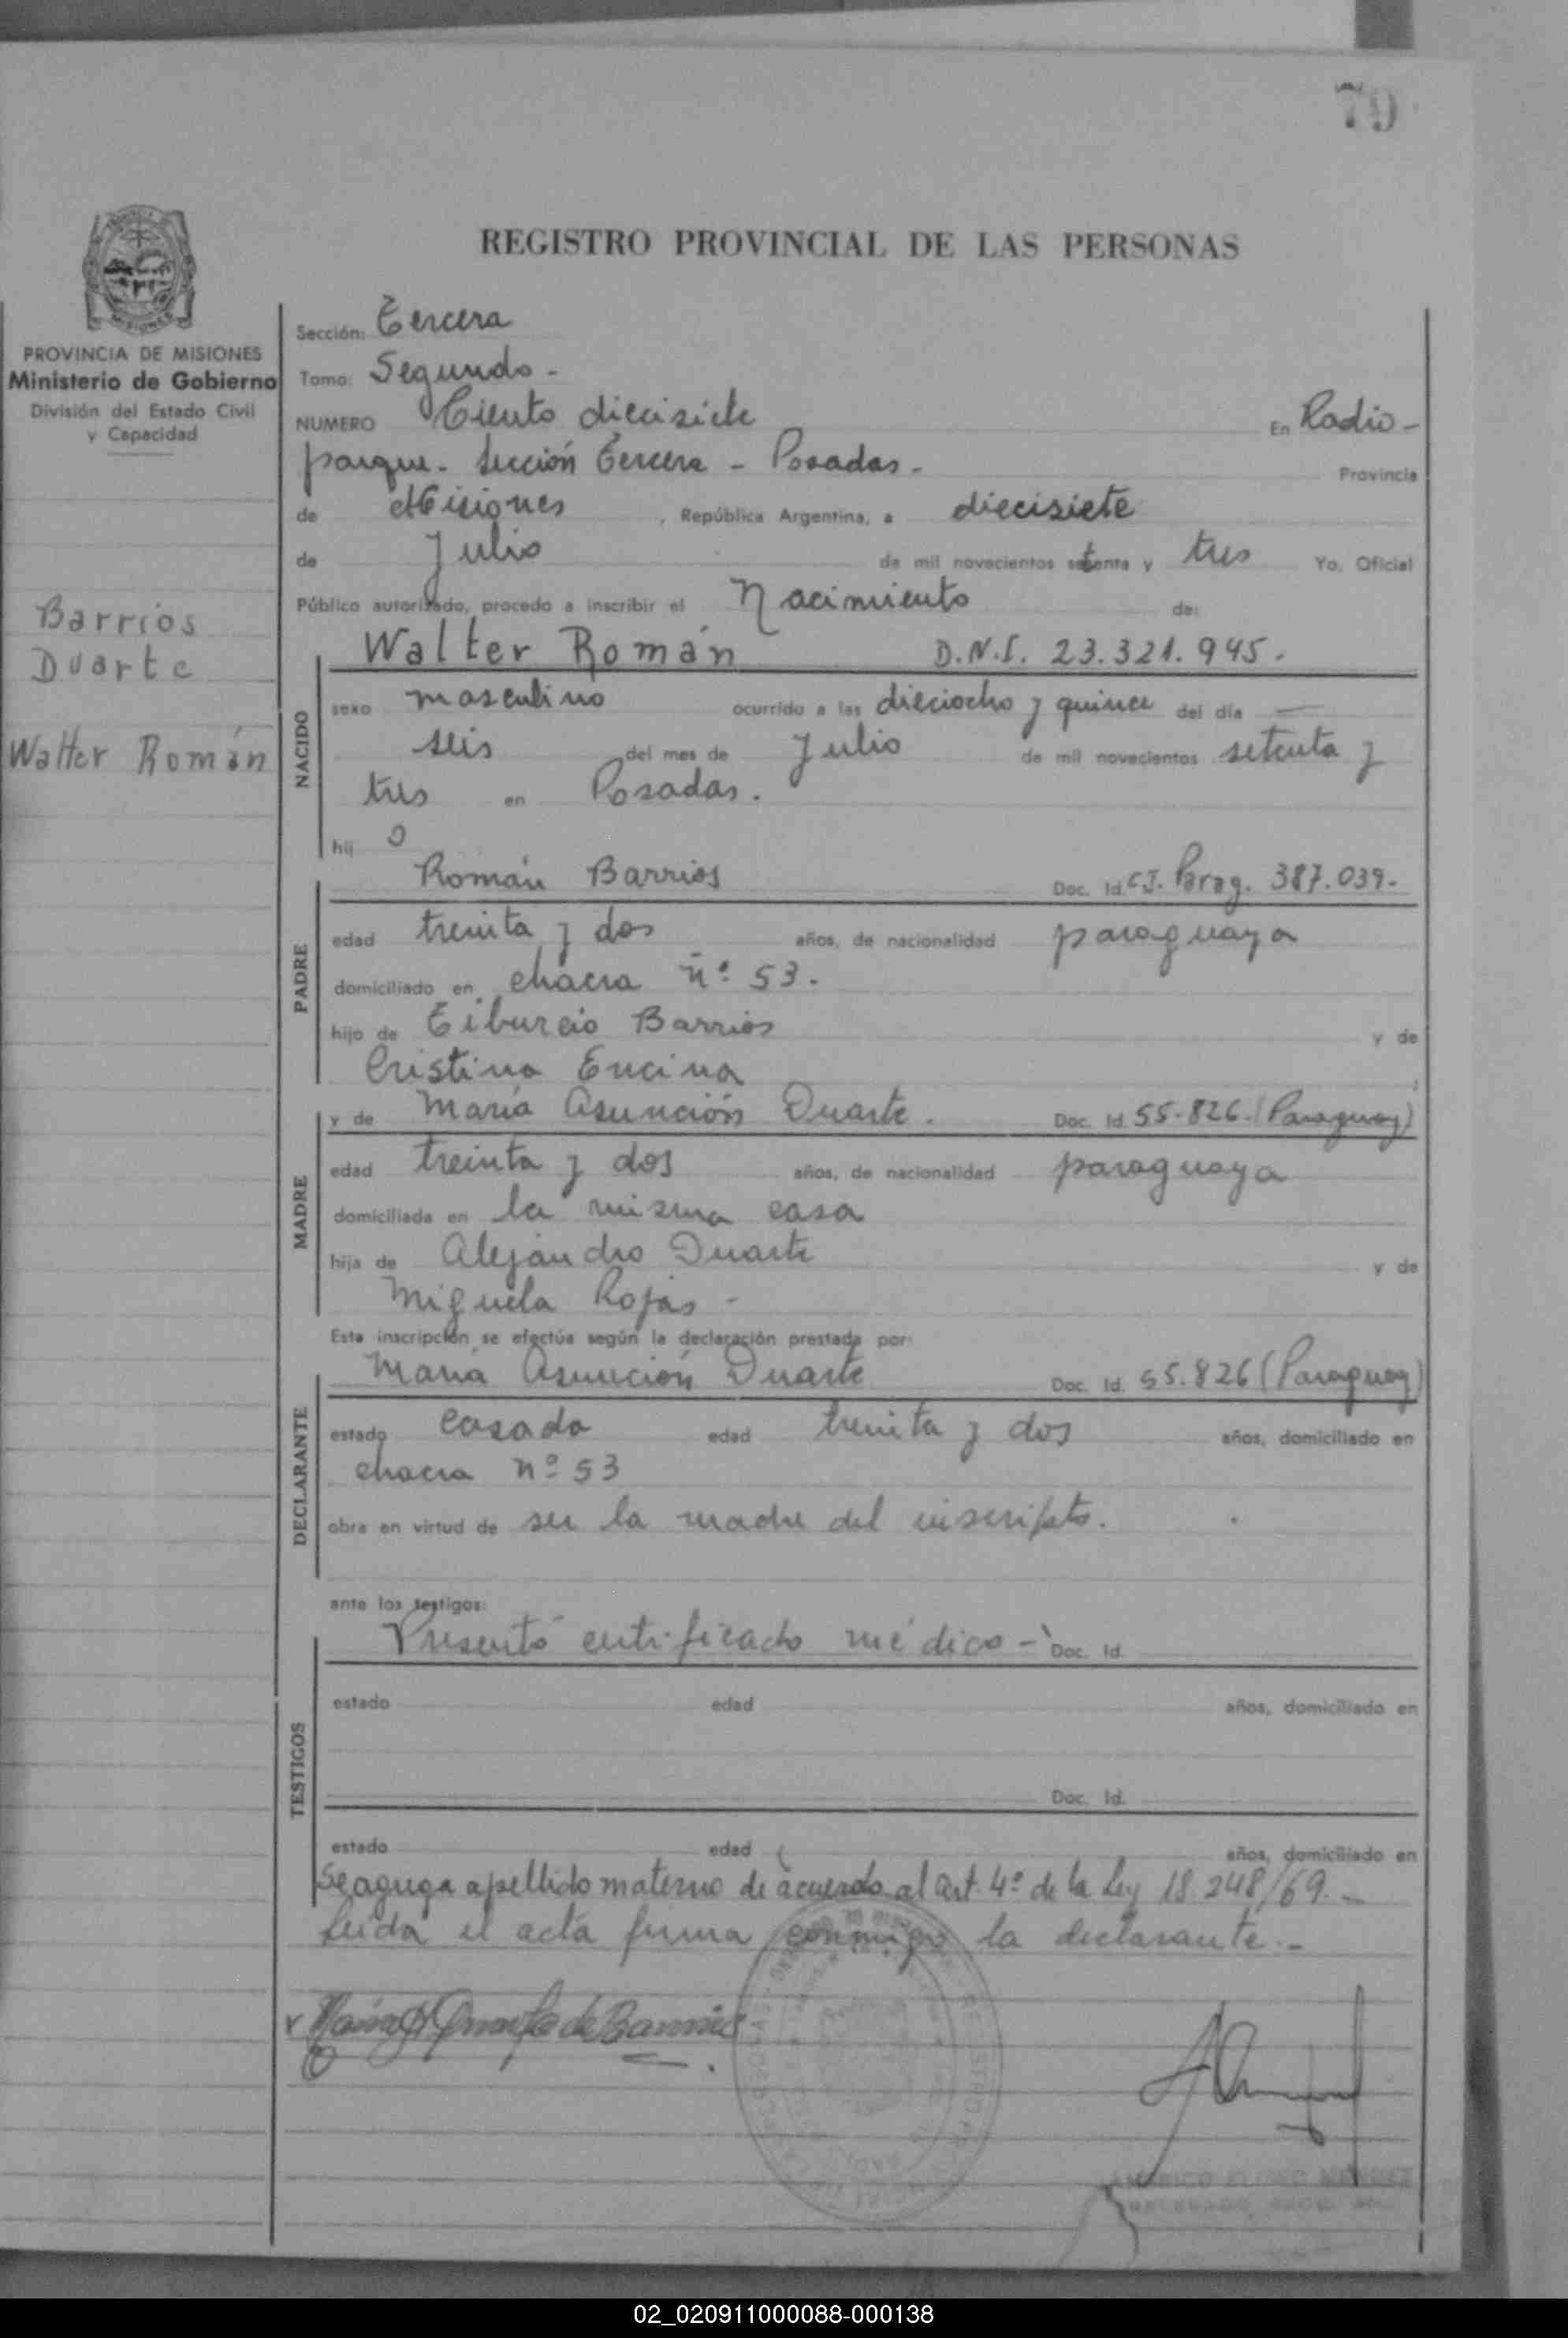 79
REGISTRO PROVINCIAL DE LAS PERSONAS
MISIONES
PROVINCIA DE MISIONES
Ministerio de Gobierno
División del Estado Civil
y Capacidad
Barrios
Duarte
Walter Román
Sección: Tercera
Tomo: Segundo -
NUMERO Ciento diecisiete En Radio -
parque - Sección Tercera - Posadas - Provincia
de Misiones, República Argentina, a diecisiete
de Julio de mil novecientos setenta y tres Yo, Oficial
Público autorizado, procedo a inscribir el Nacimiento de:
Walter Román D.N.I. 23.321.945.
NACIDO
sexo masculino ocurrido a las dieciocho y quince del día —
seis del mes de Julio de mil novecientos setenta y
tres en Posadas.
hij o
PADRE
Román Barrios Doc. Id. C.I. Parag. 387.039-
edad treinta y dos años, de nacionalidad paraguaya
domiciliado en chacra nº 53.
hijo de Tiburcio Barrios y de
Cristina Encina
MADRE
y de María Asunción Duarte. Doc. Id. 55.826. (Paraguay)
edad treinta y dos años, de nacionalidad paraguaya
domiciliada en la misma casa
hija de Alejandro Duarte y de
Miguela Rojas -
Esta inscripción se efectúa según la declaración prestada por:
DECLARANTE
María Asunción Duarte Doc. Id. 55.826 (Paraguay)
estado casada edad treinta y dos años, domiciliado en
chacra nº 53
obra en virtud de ser la madre del inscripto.
ante los testigos:
TESTIGOS
Presentó certificado médico - Doc. Id.
estado edad años, domiciliado en
Doc. Id.
estado edad años, domiciliado en
Se agrega apellido materno de acuerdo al art. 4º de la Ley 18.248/69. -
Leída el acta firma conmigo la declarante. -
María A Duarte de Barrios
02_020911000088-000138